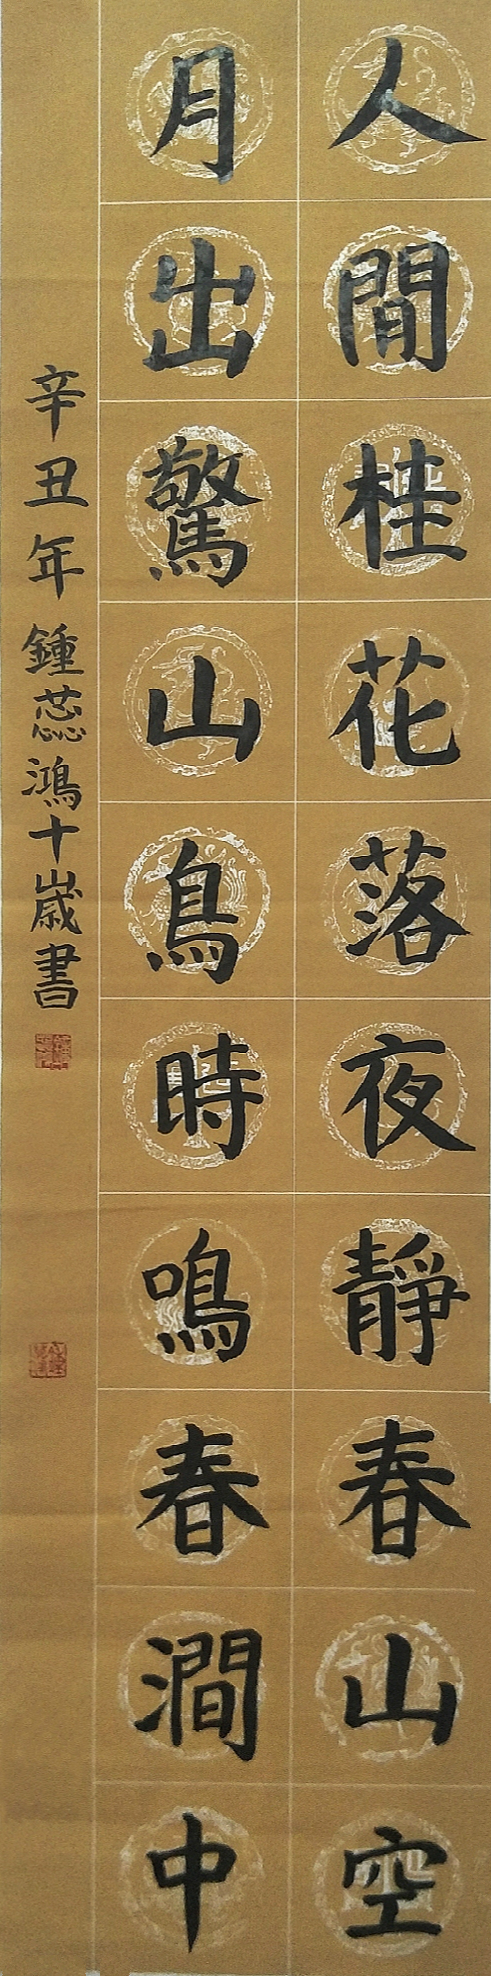 人閒桂花落夜靜春山空
月出驚山鳥時鳴春澗中
辛丑年鍾蕊鴻十歲書